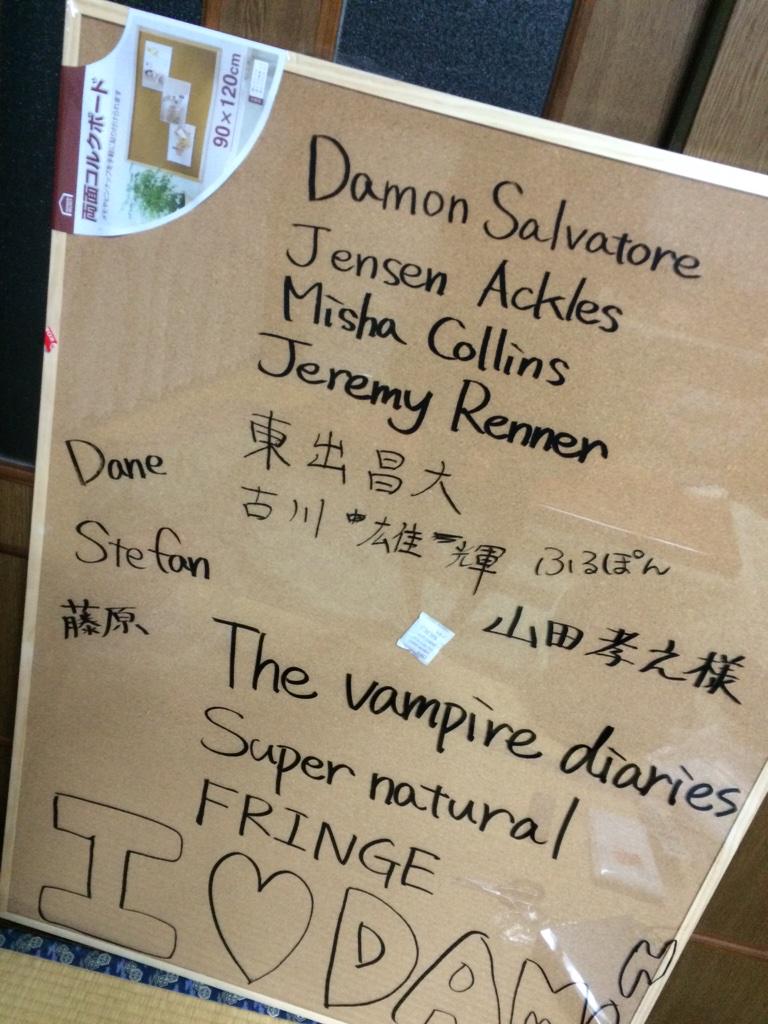 両面コルクボード
90×120cm
Damon Salvatore
Jensen Ackles
Misha Collins
Jeremy Renner
Dane
東出昌大
古川 雄輝 ふるぽん
Stefan
藤原、
山田孝之様
The vampire diaries
Super natural
FRINGE
I ♡ DAM